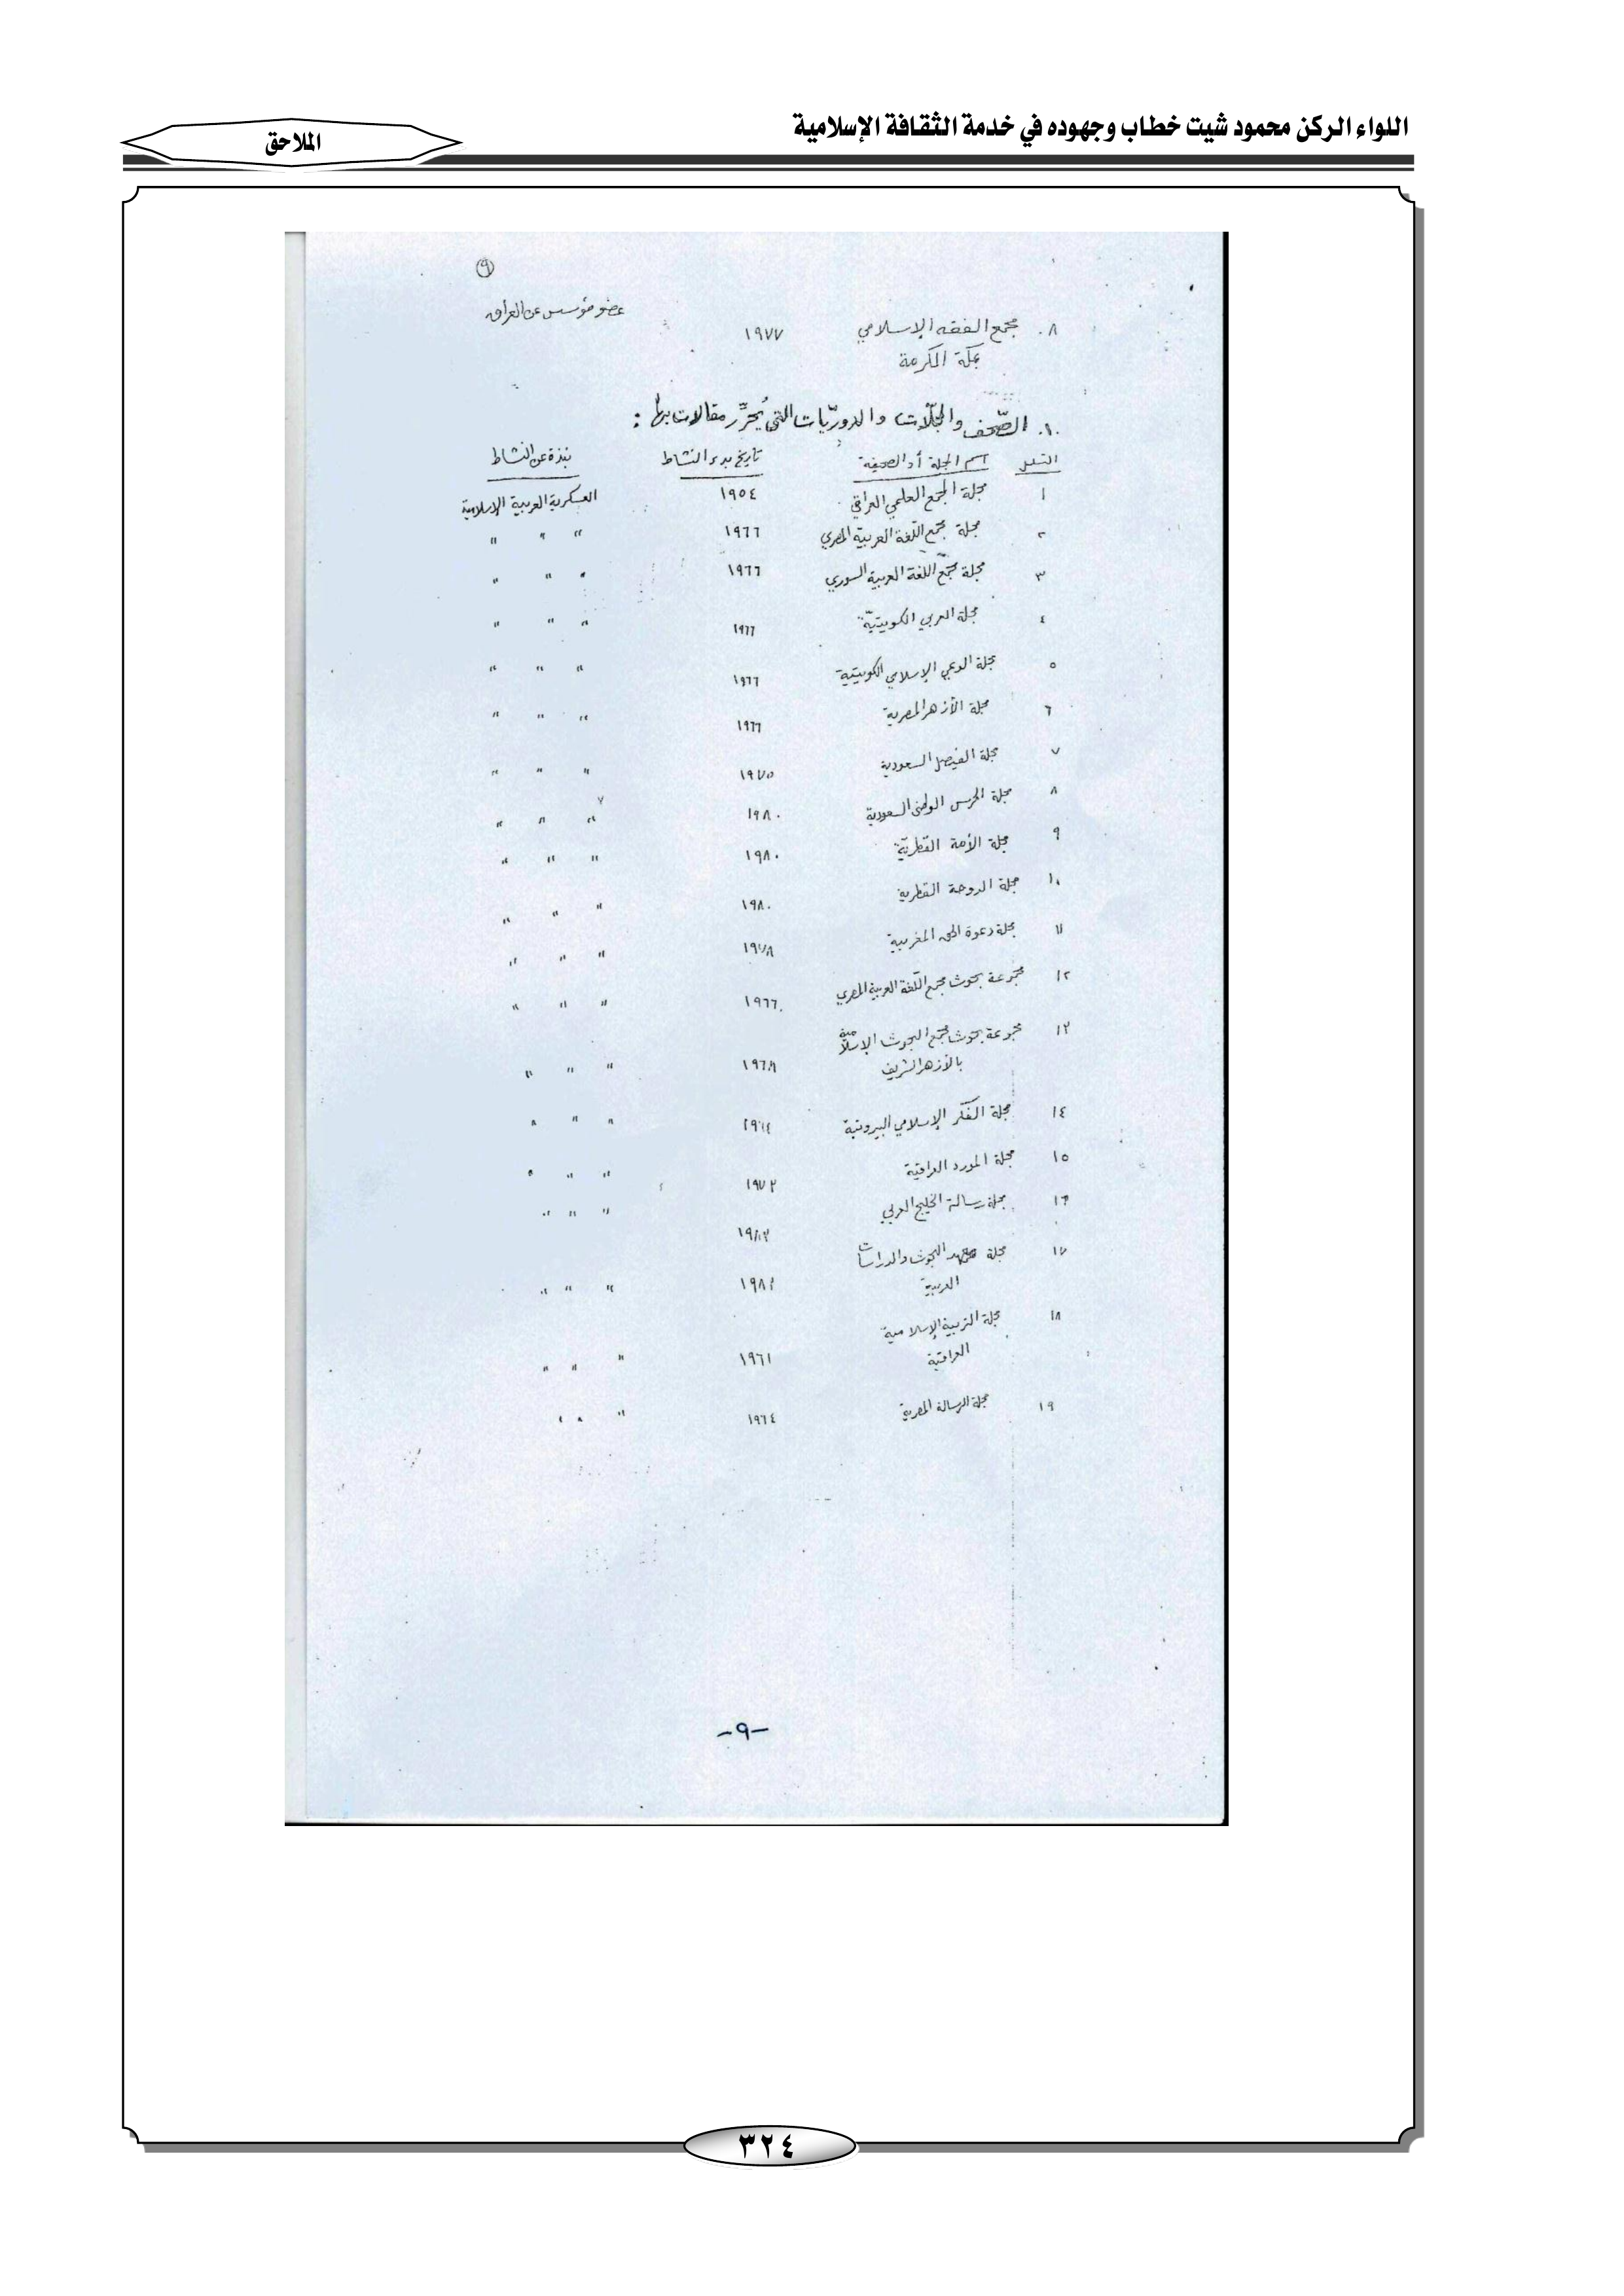 اللواء الركن محمود شيت خطاب وجهوده في خدمة الثقافة الإسلامية
الملاحق
٩
٨. مجمع الفقه الإسلامي ١٩٧٧ عضو مؤسس عن العراق
بمكة المكرمة
١٠. الصّحف والمجلّات والدوريّات التي يُحرِّر مقالات بها :
التسلسل اسم المجلة أو الصحيفة تاريخ بدء النشاط نبذة عن النشاط
١ مجلة المجمع العلمي العراقي ١٩٥٤ العسكرية العربية الإسلامية
٢ مجلة مجمع اللغة العربية المصري ١٩٦٦ " " "
٣ مجلة مجمع اللغة العربية السوري ١٩٦٦ " " "
٤ مجلة العربي الكويتيّة ١٩٦٦ " " "
٥ مجلة الوعي الإسلامي الكويتية ١٩٦٦ " " "
٦ مجلة الأزهر المصرية ١٩٦٦ " " "
٧ مجلة الفيصل السعودية ١٩٧٥ " " "
٨ مجلة الحرس الوطني السعودية ١٩٨٠ " " "
٩ مجلة الأمة القطريّة ١٩٨٠ " " "
١٠ مجلة الدوحة القطرية ١٩٨٠ " " "
١١ مجلة دعوة الحق المغربية ١٩٧٨ " " "
١٢ مجموعة بحوث مجمع اللّغة العربية المصري ١٩٦٦ " " "
١٣ مجموعة بحوث مجمع البحوث الإسلامية
بالأزهر الشريف " " "
١٤ مجلة الفكر الإسلامي البيروتية " " "
١٥ مجلة المورد العراقية ١٩٧٢ " " "
١٦ مجلة رسالة الخليج العربي " " "
١٧ مجلة معهد البحوث والدراسات
العربية " " "
١٨ مجلة التربية الإسلامية
العراقية ١٩٦١ " " "
١٩ مجلة الرسالة المصرية ١٩٦٤ " " "
-٩-
٣٢٤